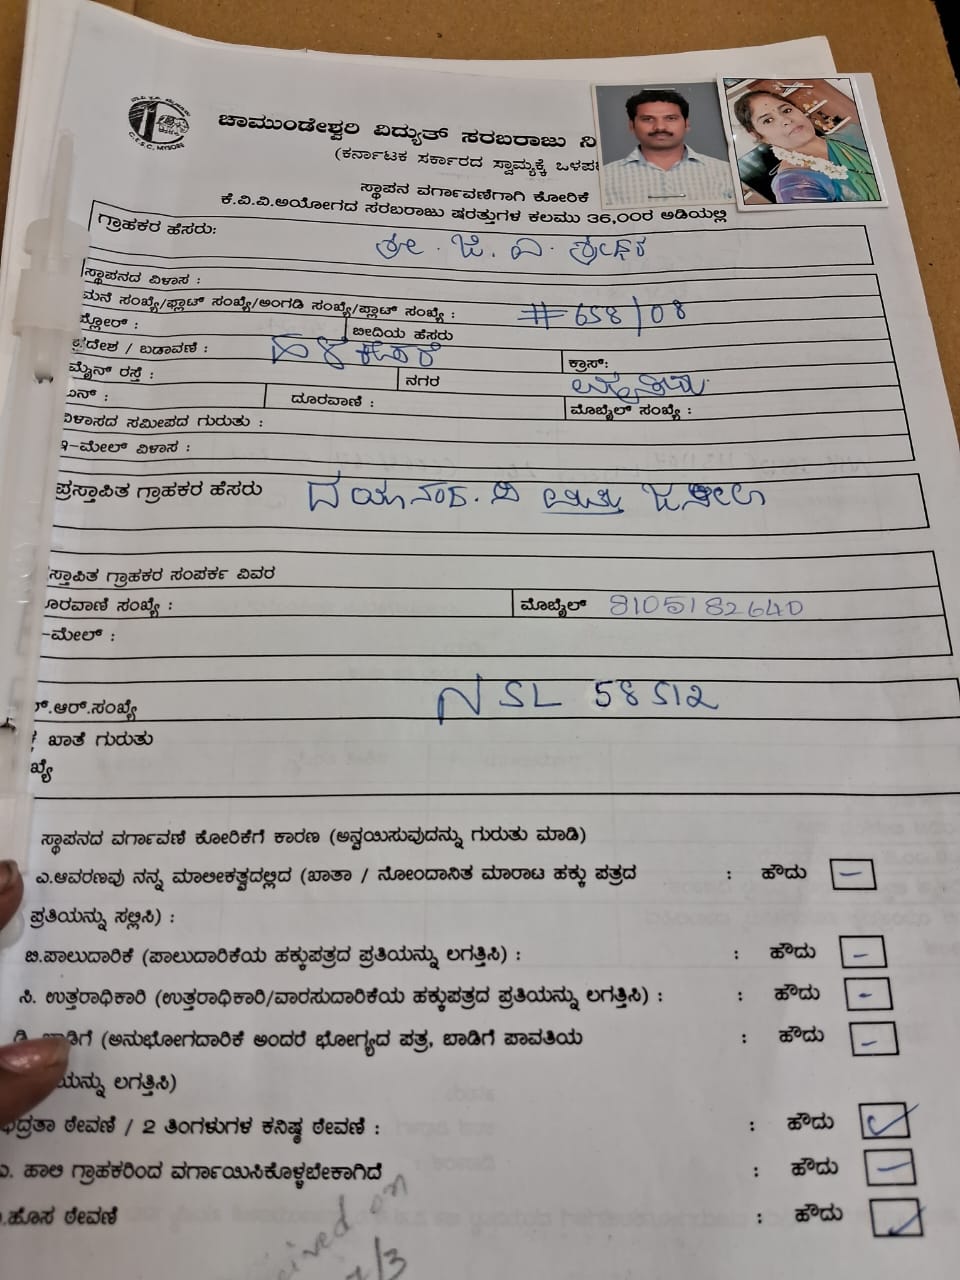 C.E.S.C. MYSORE
ಚಾಮುಂಡೇಶ್ವರಿ ವಿದ್ಯುತ್ ಸರಬರಾಜು ನಿ
(ಕರ್ನಾಟಕ ಸರ್ಕಾರದ ಸ್ವಾಮ್ಯಕ್ಕೆ ಒಳಪ
ಸ್ಥಾಪನ ವರ್ಗಾವಣೆಗಾಗಿ ಕೋರಿಕೆ
ಕೆ.ವಿ.ವಿ.ಅಯೋಗದ ಸರಬರಾಜು ಷರತ್ತುಗಳ ಕಲಮು 36,00ರ ಅಡಿಯಲ್ಲಿ
ಗ್ರಾಹಕರ ಹೆಸರು: ಶ್ರೀ. ಜಿ. ವಿ. ಶ್ರೀಧರ
ಸ್ಥಾಪನದ ವಿಳಾಸ :
ಮನೆ ಸಂಖ್ಯೆ/ಫ್ಲಾಟ್ ಸಂಖ್ಯೆ/ಅಂಗಡಿ ಸಂಖ್ಯೆ/ಪ್ಲಾಟ್ ಸಂಖ್ಯೆ : #658/08
ಫ್ಲೋರ್ : ಬೀದಿಯ ಹೆಸರು
ಪ್ರದೇಶ / ಬಡಾವಣೆ : ಕ್ರಾಸ್:
ಮೈನ್ ರಸ್ತೆ : ನಗರ ಮೈಸೂರು
ಪಿನ್ : ದೂರವಾಣಿ : ಮೊಬೈಲ್ ಸಂಖ್ಯೆ :
ವಿಳಾಸದ ಸಮೀಪದ ಗುರುತು :
ಇ-ಮೇಲ್ ವಿಳಾಸ :
ಪ್ರಸ್ತಾಪಿತ ಗ್ರಾಹಕರ ಹೆಸರು ಮತ್ತು
ಸ್ತಾಪಿತ ಗ್ರಾಹಕರ ಸಂಪರ್ಕ ವಿವರ
ದೂರವಾಣಿ ಸಂಖ್ಯೆ : ಮೊಬೈಲ್ 8105182640
-ಮೇಲ್ :
ರ್.ಆರ್.ಸಂಖ್ಯೆ NSL 58512
ಖಾತೆ ಗುರುತು
ಖ್ಯೆ
ಸ್ಥಾಪನದ ವರ್ಗಾವಣೆ ಕೋರಿಕೆಗೆ ಕಾರಣ (ಅನ್ವಯಿಸುವುದನ್ನು ಗುರುತು ಮಾಡಿ)
ಎ.ಆವರಣವು ನನ್ನ ಮಾಲೀಕತ್ವದಲ್ಲಿದ (ಖಾತಾ / ನೋಂದಾನಿತ ಮಾರಾಟ ಹಕ್ಕು ಪತ್ರದ : ಹೌದು –
ಪ್ರತಿಯನ್ನು ಸಲ್ಲಿಸಿ) :
ಬಿ.ಪಾಲುದಾರಿಕೆ (ಪಾಲುದಾರಿಕೆಯ ಹಕ್ಕುಪತ್ರದ ಪ್ರತಿಯನ್ನು ಲಗತ್ತಿಸಿ) : : ಹೌದು –
ಸಿ. ಉತ್ತರಾಧಿಕಾರಿ (ಉತ್ತರಾಧಿಕಾರಿ/ವಾರಸುದಾರಿಕೆಯ ಹಕ್ಕುಪತ್ರದ ಪ್ರತಿಯನ್ನು ಲಗತ್ತಿಸಿ) : : ಹೌದು –
ಡಿ. ಬಾಡಿಗೆ (ಅನುಭೋಗದಾರಿಕೆ ಅಂದರೆ ಭೋಗ್ಯದ ಪತ್ರ, ಬಾಡಿಗೆ ಪಾವತಿಯ : ಹೌದು –
ಯನ್ನು ಲಗತ್ತಿಸಿ)
ಭದ್ರತಾ ಠೇವಣಿ / 2 ತಿಂಗಳುಗಳ ಕನಿಷ್ಠ ಠೇವಣಿ : : ಹೌದು ✓
ಎ. ಹಾಲಿ ಗ್ರಾಹಕರಿಂದ ವರ್ಗಾಯಿಸಿಕೊಳ್ಳಬೇಕಾಗಿದೆ : ಹೌದು –
.ಹೊಸ ಠೇವಣಿ : ಹೌದು ✓